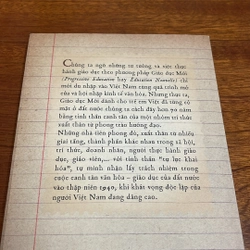 Chúng ta ngỡ những tư tưởng và việc thực
hành giáo dục theo phương pháp Giáo dục Mới
(Progressive Education hay Education Nouvelle) chỉ
mới du nhập vào Việt Nam cùng quá trình mở
cửa và hội nhập kinh tế văn hóa. Nhưng thực ra,
Giáo dục Mới dành cho trẻ em Việt đã từng có
mặt ở đất nước chúng ta cách đây hơn 70 năm
bằng chính những nỗ lực của một nhóm trí thức
xuất thân từ phong trào hướng đạo.
Những nhà tiên phong đó, xuất thân từ nhiều
giai tầng, thành phần khác nhau trong xã hội,
trí thức, doanh nhân, người thực hành giáo
dục, giáo viên,... với tinh thần "tự lực khai
hóa", tự mình nhận lấy trách nhiệm trong
cuộc canh tân văn hóa – giáo dục của đất nước
vào thập niên 1940, khi khát vọng độc lập của
người Việt Nam đang dâng cao.